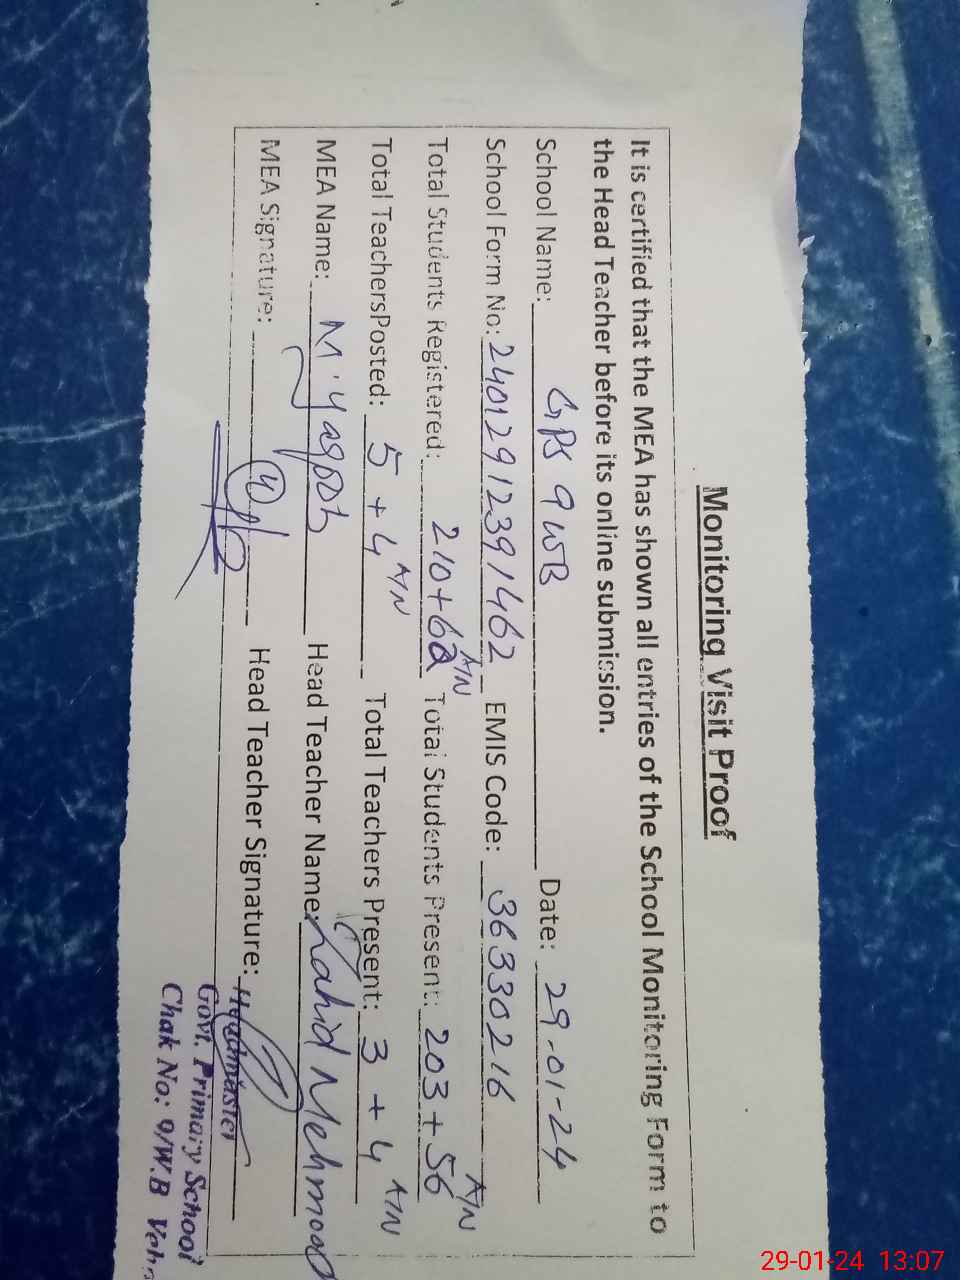 Monitoring Visit Proof
It is certified that the MEA has shown all entries of the School Monitoring Form to
the Head Teacher before its online submission.
School Name: GPS 9 WB Date: 29-01-24
School Form No: 24012912391462 EMIS Code: 36330216
Total Students Registered: 210+62 A/N Total Students Present: 203+56 A/N
Total TeachersPosted: 5+4 A/N Total Teachers Present: 3+4 A/N
MEA Name: M. Yaqoob Head Teacher Name: Zahid Mehmood
MEA Signature: Head Teacher Signature:
Headmaster
Govt. Primary School
Chak No: 9/W.B
29-01-24 13:07